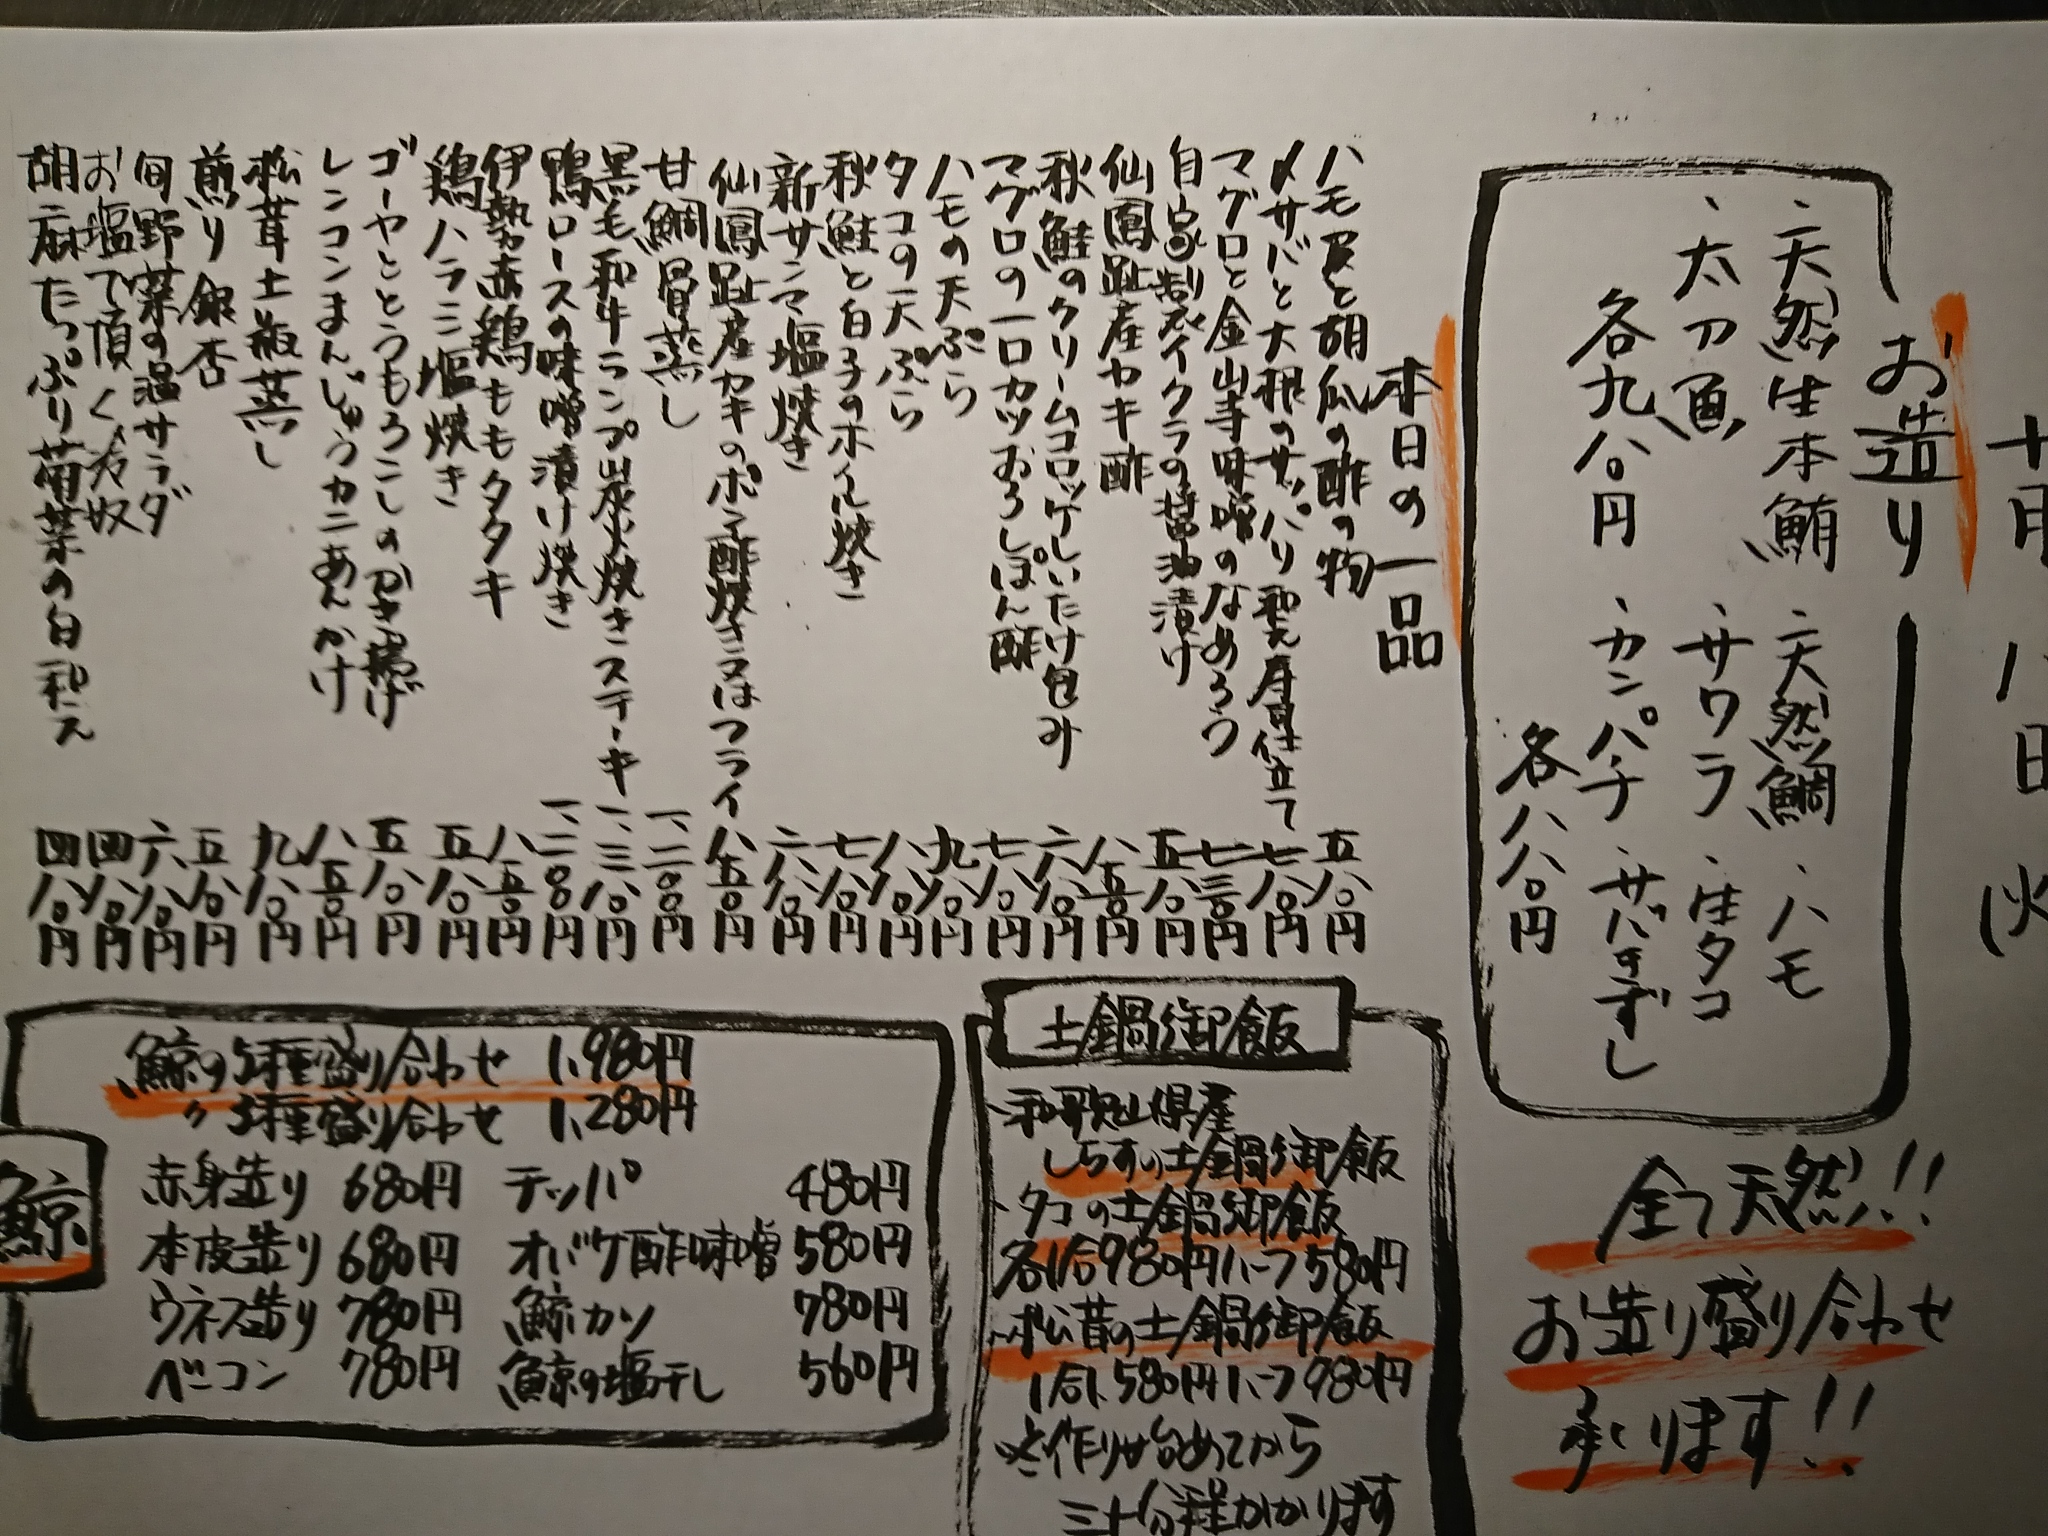 十月八日(火
お造り
、天然生本鮪 、天然鯛 、ハモ
、太刀魚 、サワラ 、生タコ
各九八〇円 、カンパチ 、サバきずし
各八八〇円
全て天然!!
お造り盛り合わせ
承ります!!
本日の一品
ハモ皮と胡瓜の酢の物 五八〇円
〆サバと大根のサッパリ和え寿司仕立て 七八〇円
マグロと金山寺味噌のなめろう 七三〇円
自家製イクラの醤油漬け 五八〇円
仙鳳趾産カキ酢 八五〇円
秋鮭のクリームコロッケしいたけ包み 六八〇円
マグロの一口カツおろしぽん酢 七八〇円
ハモの天ぷら 九八〇円
タコの天ぷら 八八〇円
秋鮭と白子のホイル焼き 七八〇円
新サンマ塩焼き 六八〇円
仙鳳趾産カキのポン酢焼き又はフライ 八五〇円
甘鯛骨蒸し 一、二〇〇円
黒毛和牛ランプ炭火焼きステーキ 一、三八〇円
鴨ロースの味噌漬け焼き 一、二〇〇円
伊勢赤鶏ももタタキ 八五〇円
鶏ハラミ塩焼き 五八〇円
ゴーヤととうもろこしのかき揚げ 五八〇円
レンコンまんじゅうカニあんかけ 八五〇円
松茸土瓶蒸し 九八〇円
煎り銀杏 五八〇円
旬野菜の温サラダ 六八〇円
お塩で頂く冷奴 四八〇円
胡麻たっぷり菊菜の白和え 四八〇円
土鍋御飯
、和歌山県産
しらすの土鍋御飯
、タコの土鍋御飯
各1合980円ハーフ580円
、松茸の土鍋御飯
1合1,580円ハーフ980円
※作り始めてから
三十分程かかります
鯨
鯨の5種盛り合わせ 1,980円
〃 3種盛り合わせ 1,280円
赤身造り 680円 テッパ 480円
本皮造り 680円 オバケ酢味噌 580円
ウネス造り 780円 鯨カツ 780円
ベーコン 780円 鯨の塩干し 560円